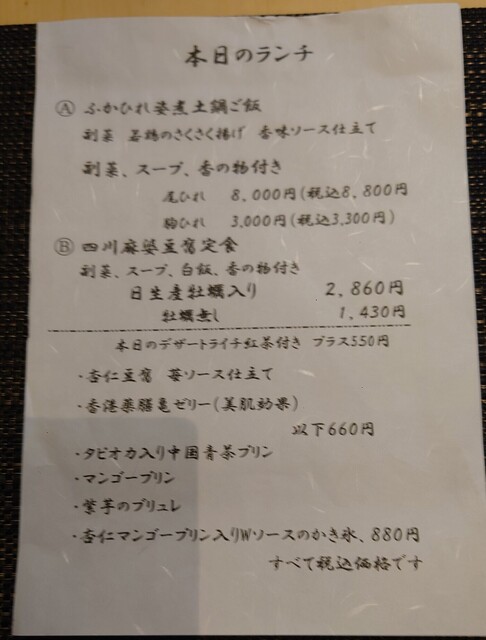 本日のランチ
Ⓐ ふかひれ姿煮土鍋ご飯
副菜 若鶏のさくさく揚げ 香味ソース仕立て
副菜、スープ、香の物付き
尾ひれ 8,000円(税込8,800円
胸ひれ 3,000円(税込3,300円)
Ⓑ 四川麻婆豆腐定食
副菜、スープ、白飯、香の物付き
日生産牡蠣入り 2,860円
牡蠣無し 1,430円
本日のデザートライチ紅茶付き プラス550円
・杏仁豆腐 苺ソース仕立て
・香港薬膳亀ゼリー(美肌効果)
以下660円
・タピオカ入り中国青茶プリン
・マンゴープリン
・紫芋のブリュレ
・杏仁マンゴープリン入りWソースのかき氷、880円
すべて税込価格です